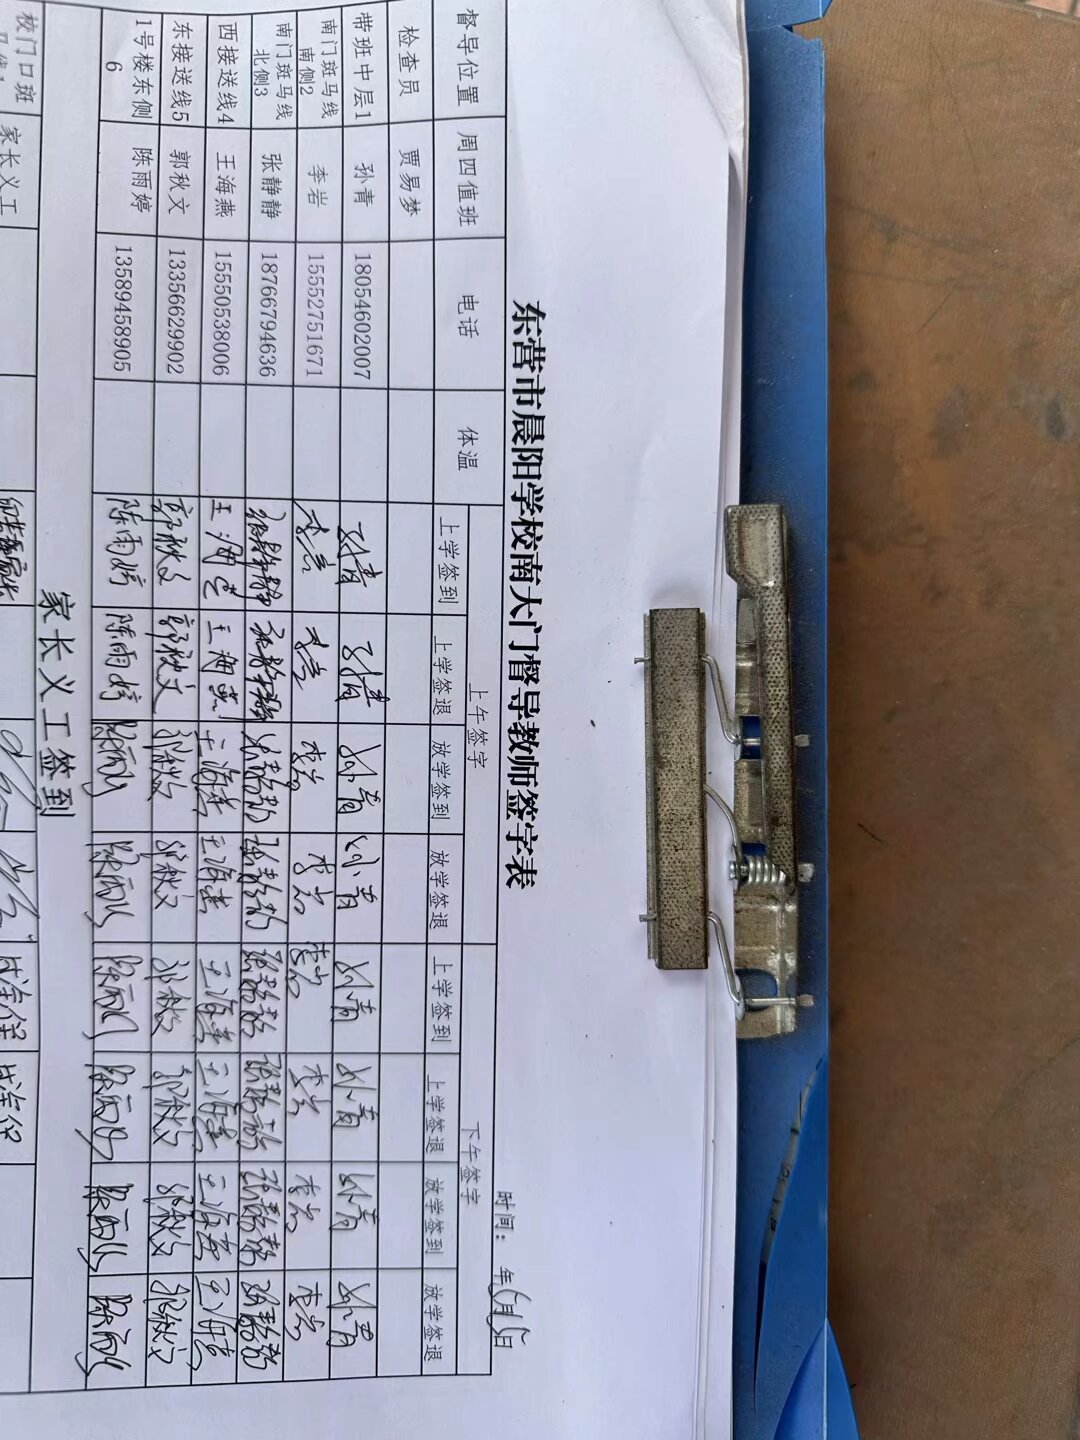 东营市晨阳学校南大门督导教师签字表
时间： 年6月6日
督导位置 周四值班 电话 体温 上午签字 下午签字
上学签到 上学签退 放学签到 放学签退 上学签到 上学签退 放学签到 放学签退
检查员 贾易梦
带班中层1 孙青 18054602007 孙青 孙青 孙青 孙青 孙青 孙青 孙青 孙青
南门斑马线南侧2 李岩 15552751671 李岩 李岩 李岩 李岩 李岩 李岩 李岩 李岩
南门斑马线北侧3 张静静 18766794636 张静静 张静静 张静静 张静静 张静静 张静静 张静静 张静静
西接送线4 王海燕 15550538006 王海燕 王海燕 王海燕 王海燕 王海燕 王海燕 王海燕 王海燕
东接送线5 郭秋文 13356629902 郭秋文 郭秋文 郭秋文 郭秋文 郭秋文 郭秋文 郭秋文 郭秋文
1号楼东侧6 陈雨婷 13589458905 陈雨婷 陈雨婷 陈雨婷 陈雨婷 陈雨婷 陈雨婷 陈雨婷 陈雨婷
家长义工签到
校门口斑 家长义工